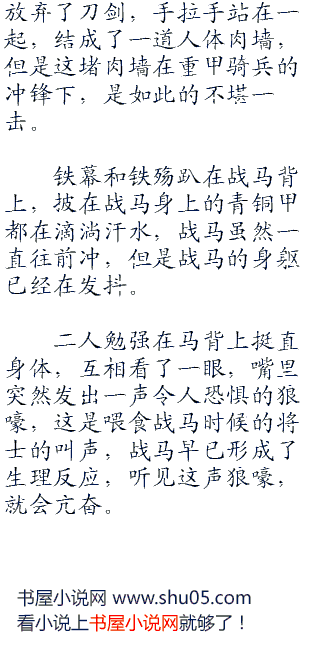 放弃了刀剑，手拉手站在一
起，结成了一道人体肉墙，
但是这堵肉墙在重甲骑兵的
冲锋下，是如此的不堪一
击。
铁幕和铁殇趴在战马背
上，披在战马身上的青铜甲
都在滴淌汗水，战马虽然一
直往前冲，但是战马的身躯
已经在发抖。
二人勉强在马背上挺直
身体，互相看了一眼，嘴里
突然发出一声令人恐惧的狼
嚎，这是喂食战马时候的将
士的叫声，战马早已形成了
生理反应，听见这声狼嚎，
就会亢奋。
书屋小说网 www.shu05.com
看小说上书屋小说网就够了！